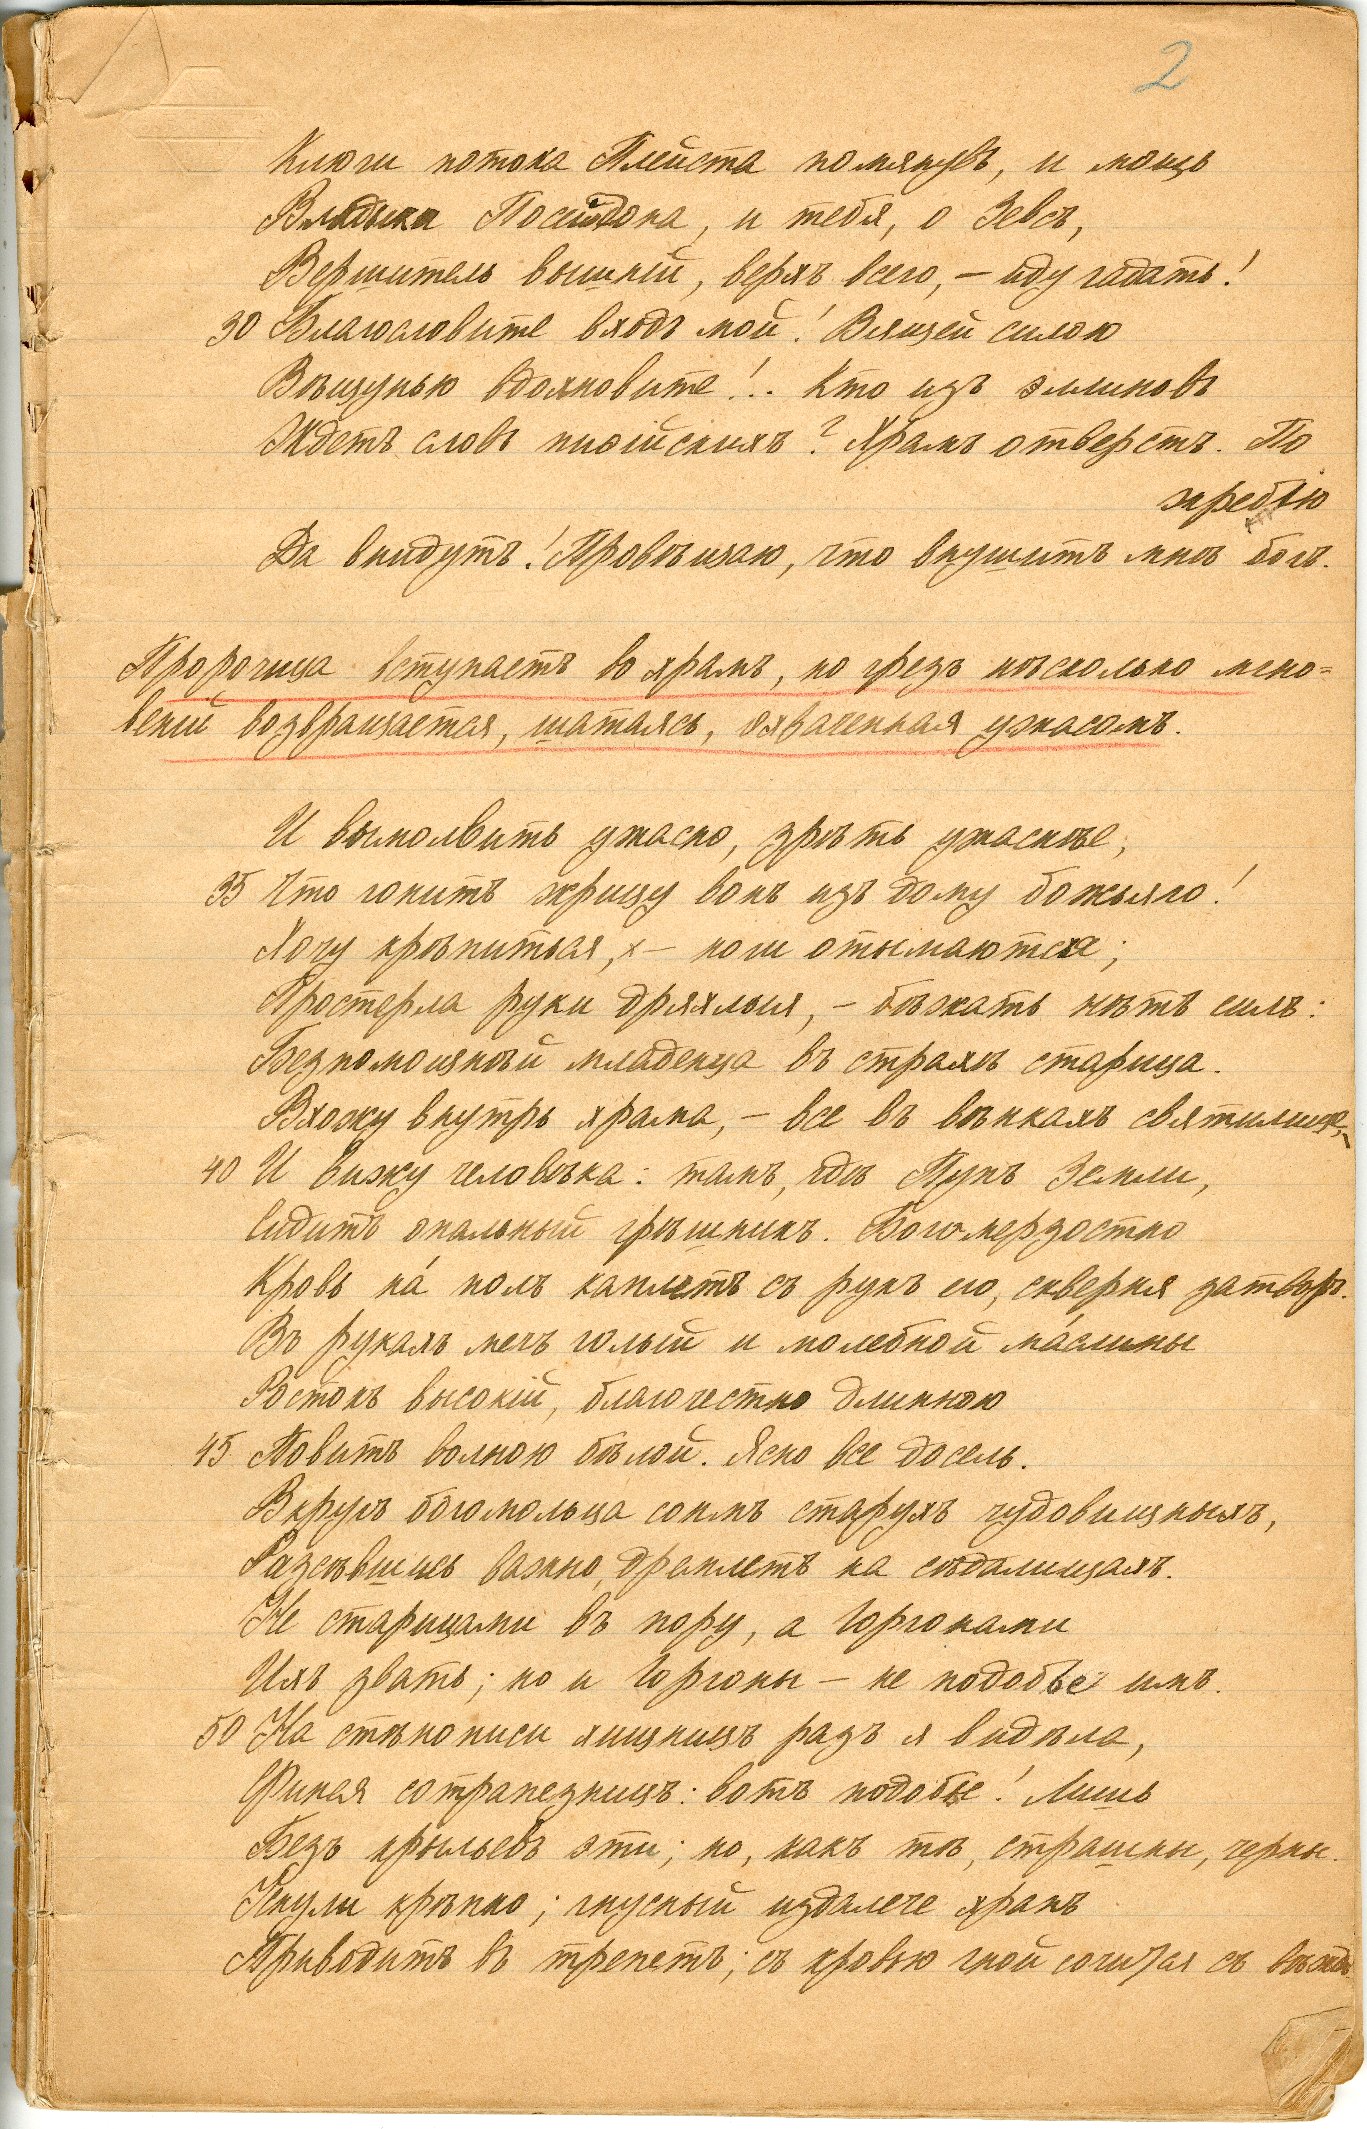 2
Ключи потока Плейста помянувъ, и мощь
Владыки Посейдона, и тебя, о Зевсъ,
Вершитель вышній, верхъ всего, — иду гадать!
30 Благословите входъ мой! Вящей силою
Вѣщунью вдохновите!.. Кто изъ эллиновъ
Ждетъ словъ пиѳійскихъ? Храмъ отверстъ. По
жребію
Да внидутъ! Провѣщаю, что внушитъ мнѣ богъ.
Пророчица вступаетъ во храмъ, но чрезъ нѣсколько мгно=
веній возвращается, шатаясь, охваченная ужасомъ.
И вымолвить ужасно, зрѣть ужаснѣе,
35 Что гонитъ жрицу вонъ изъ дому божьяго!
Хочу крѣпиться, — ноги отымаются;
Простерла руки дряхлыя, — бѣжать нѣтъ силъ:
Безпомощнѣй младенца въ страхѣ старица.
Вхожу внутрь храма, — все въ вѣнкахъ святилище, —
40 И вижу человѣка: тамъ, гдѣ Пупъ Земли,
Сидитъ опальный грѣшникъ. Богомерзостно
Кровь на́ полъ каплетъ съ рукъ его, скверня затворъ.
Въ рукахъ мечъ голый и молебной ма́слины
Ростокъ высокій, благочестно длинною
45 Повитъ волною бѣлой. Ясно все досель.
Вкругъ богомольца сонмъ старухъ чудовищныхъ,
Разсѣвшись важно, дремлетъ на сѣдалищахъ.
Не старицами въ пору, а Горгонами
Ихъ звать; но и Горгоны — не подобье имъ.
50 На стѣнописи хищницъ разъ я видѣла,
Финея сотрапезницъ: вотъ подобье! Лишь
Безъ крыльевъ эти; но, какъ тѣ, страшны, черны.
Уснули крѣпко; гнусный издалече храпъ
Приводитъ въ трепетъ; съ кровью гной сочится съ вѣждъ